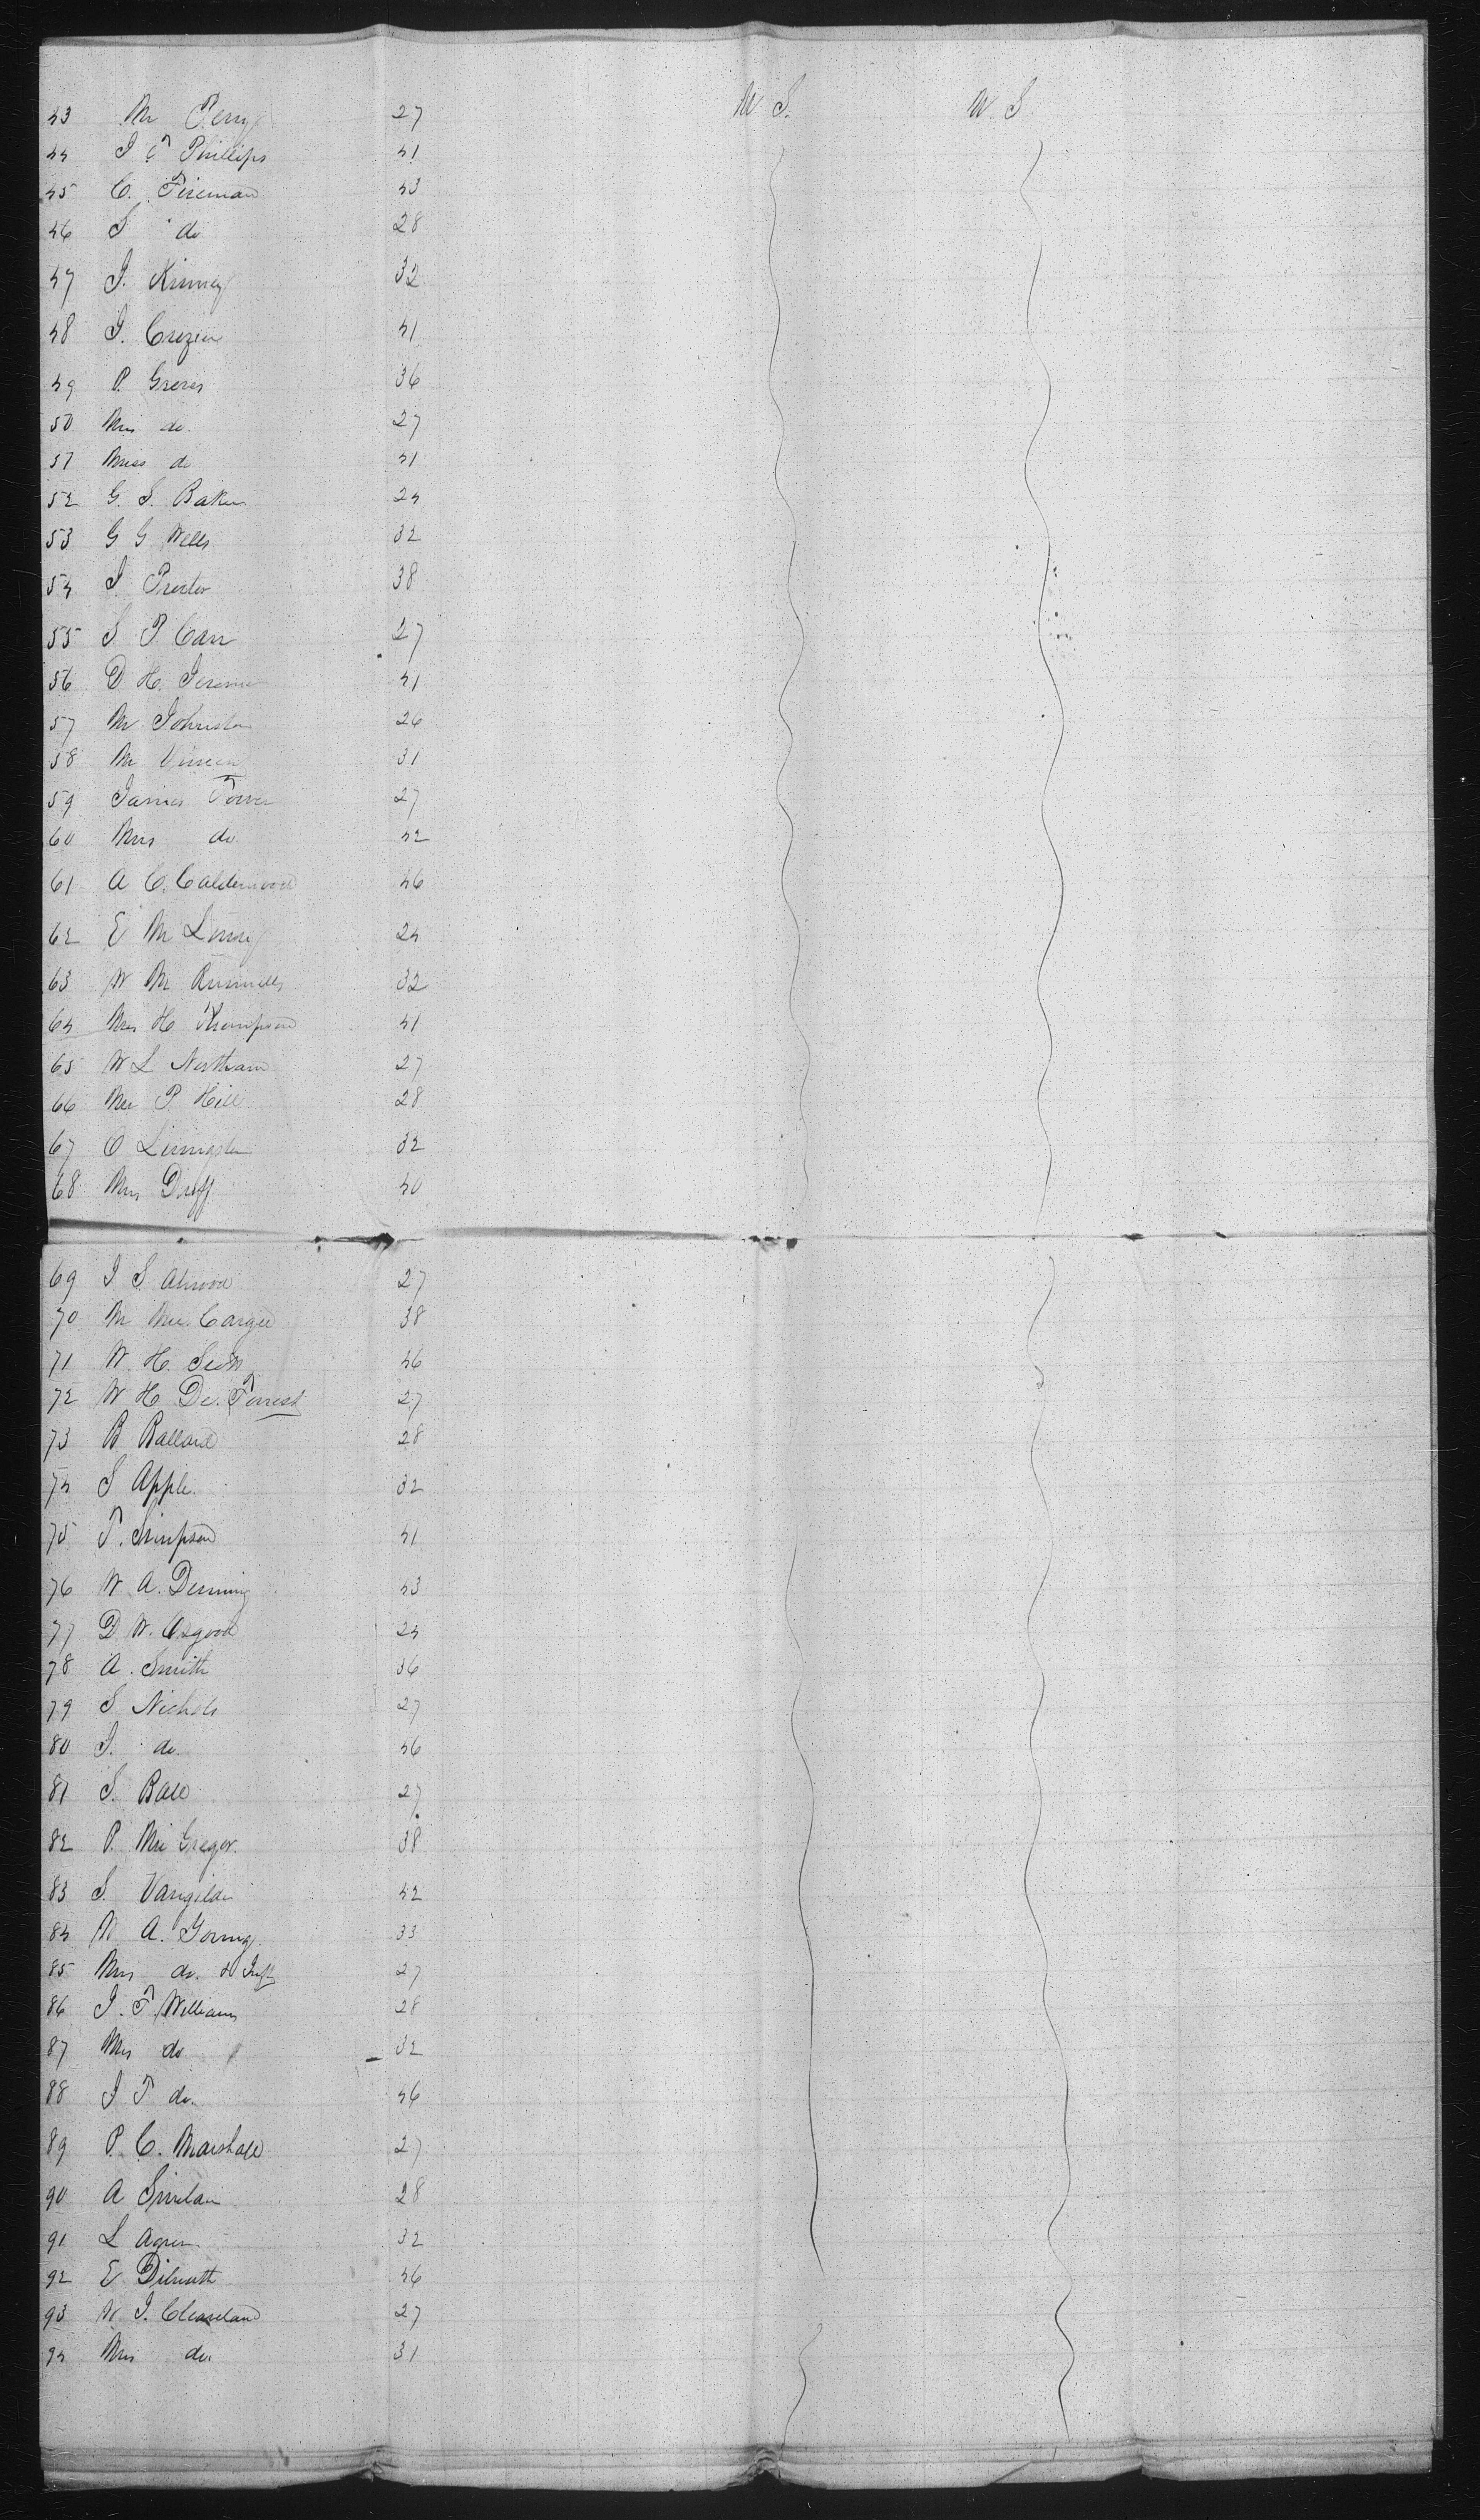 43 Mr Perry 27 U S. U S
44 J F Phillips 41
45 C. Fireman 43
46 S do 28
47 J. Kinney 32
48 J. Crozier 41
49 P. Greves 36
50 Mrs do. 27
51 Miss do 41
52 G. S. Baker 24
53 G G Wells 32
54 J. Proctor 38
55 S P Carr 27
56 D H. Jerome 41
57 Mr Johnston 26
58 Mr 31
59 James Tower 27
60 Mrs do 42
61 A C. Calderwood 46
62 E M 24
63 W M Runnells 32
64 Mrs H Thompson 41
65 W L Northam 27
66 Mr P Hill 28
67 O Livingston 32
68 Mrs Duff 40
69 J S Atwood 27
70 M 38
71 W. H. Scott 46
72 W H De. Forrest 27
73 B Ballard 28
74 S Apple. 32
75 T. Simpson 41
76 W A. Denning 43
77 D. W. Osgood 24
78 A. Smith 36
79 S Nichols 27
80 J. do. 46
81 S. Ball 27
82 P. Mc Gregor. 38
83 S. Vangilder 42
84 W A. Young. 33
85 Mrs do. & Inft 27
86 J. F Williams 28
87 Mrs do 32
88 J F do. 46
89 P. C. Marshall 27
90 A Sinclair 28
91 L Agnew 32
92 E. Dilworth 46
93 W J. Cleaveland 27
94 Mrs do. 31